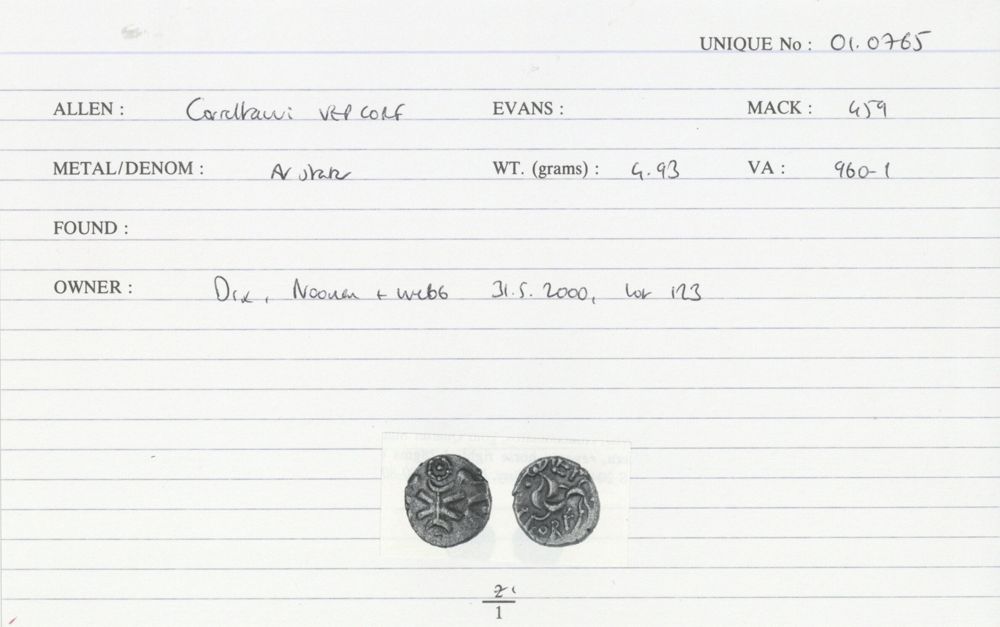 UNIQUE No : 01.0765
ALLEN : Correltauvi VEP CORF EVANS : MACK : 459
METAL/DENOM : AV stater WT. (grams) : 4.93 VA : 960-1
FOUND :
OWNER : Dix, Noonan + Webb 31.5.2000, lot 123
2
1